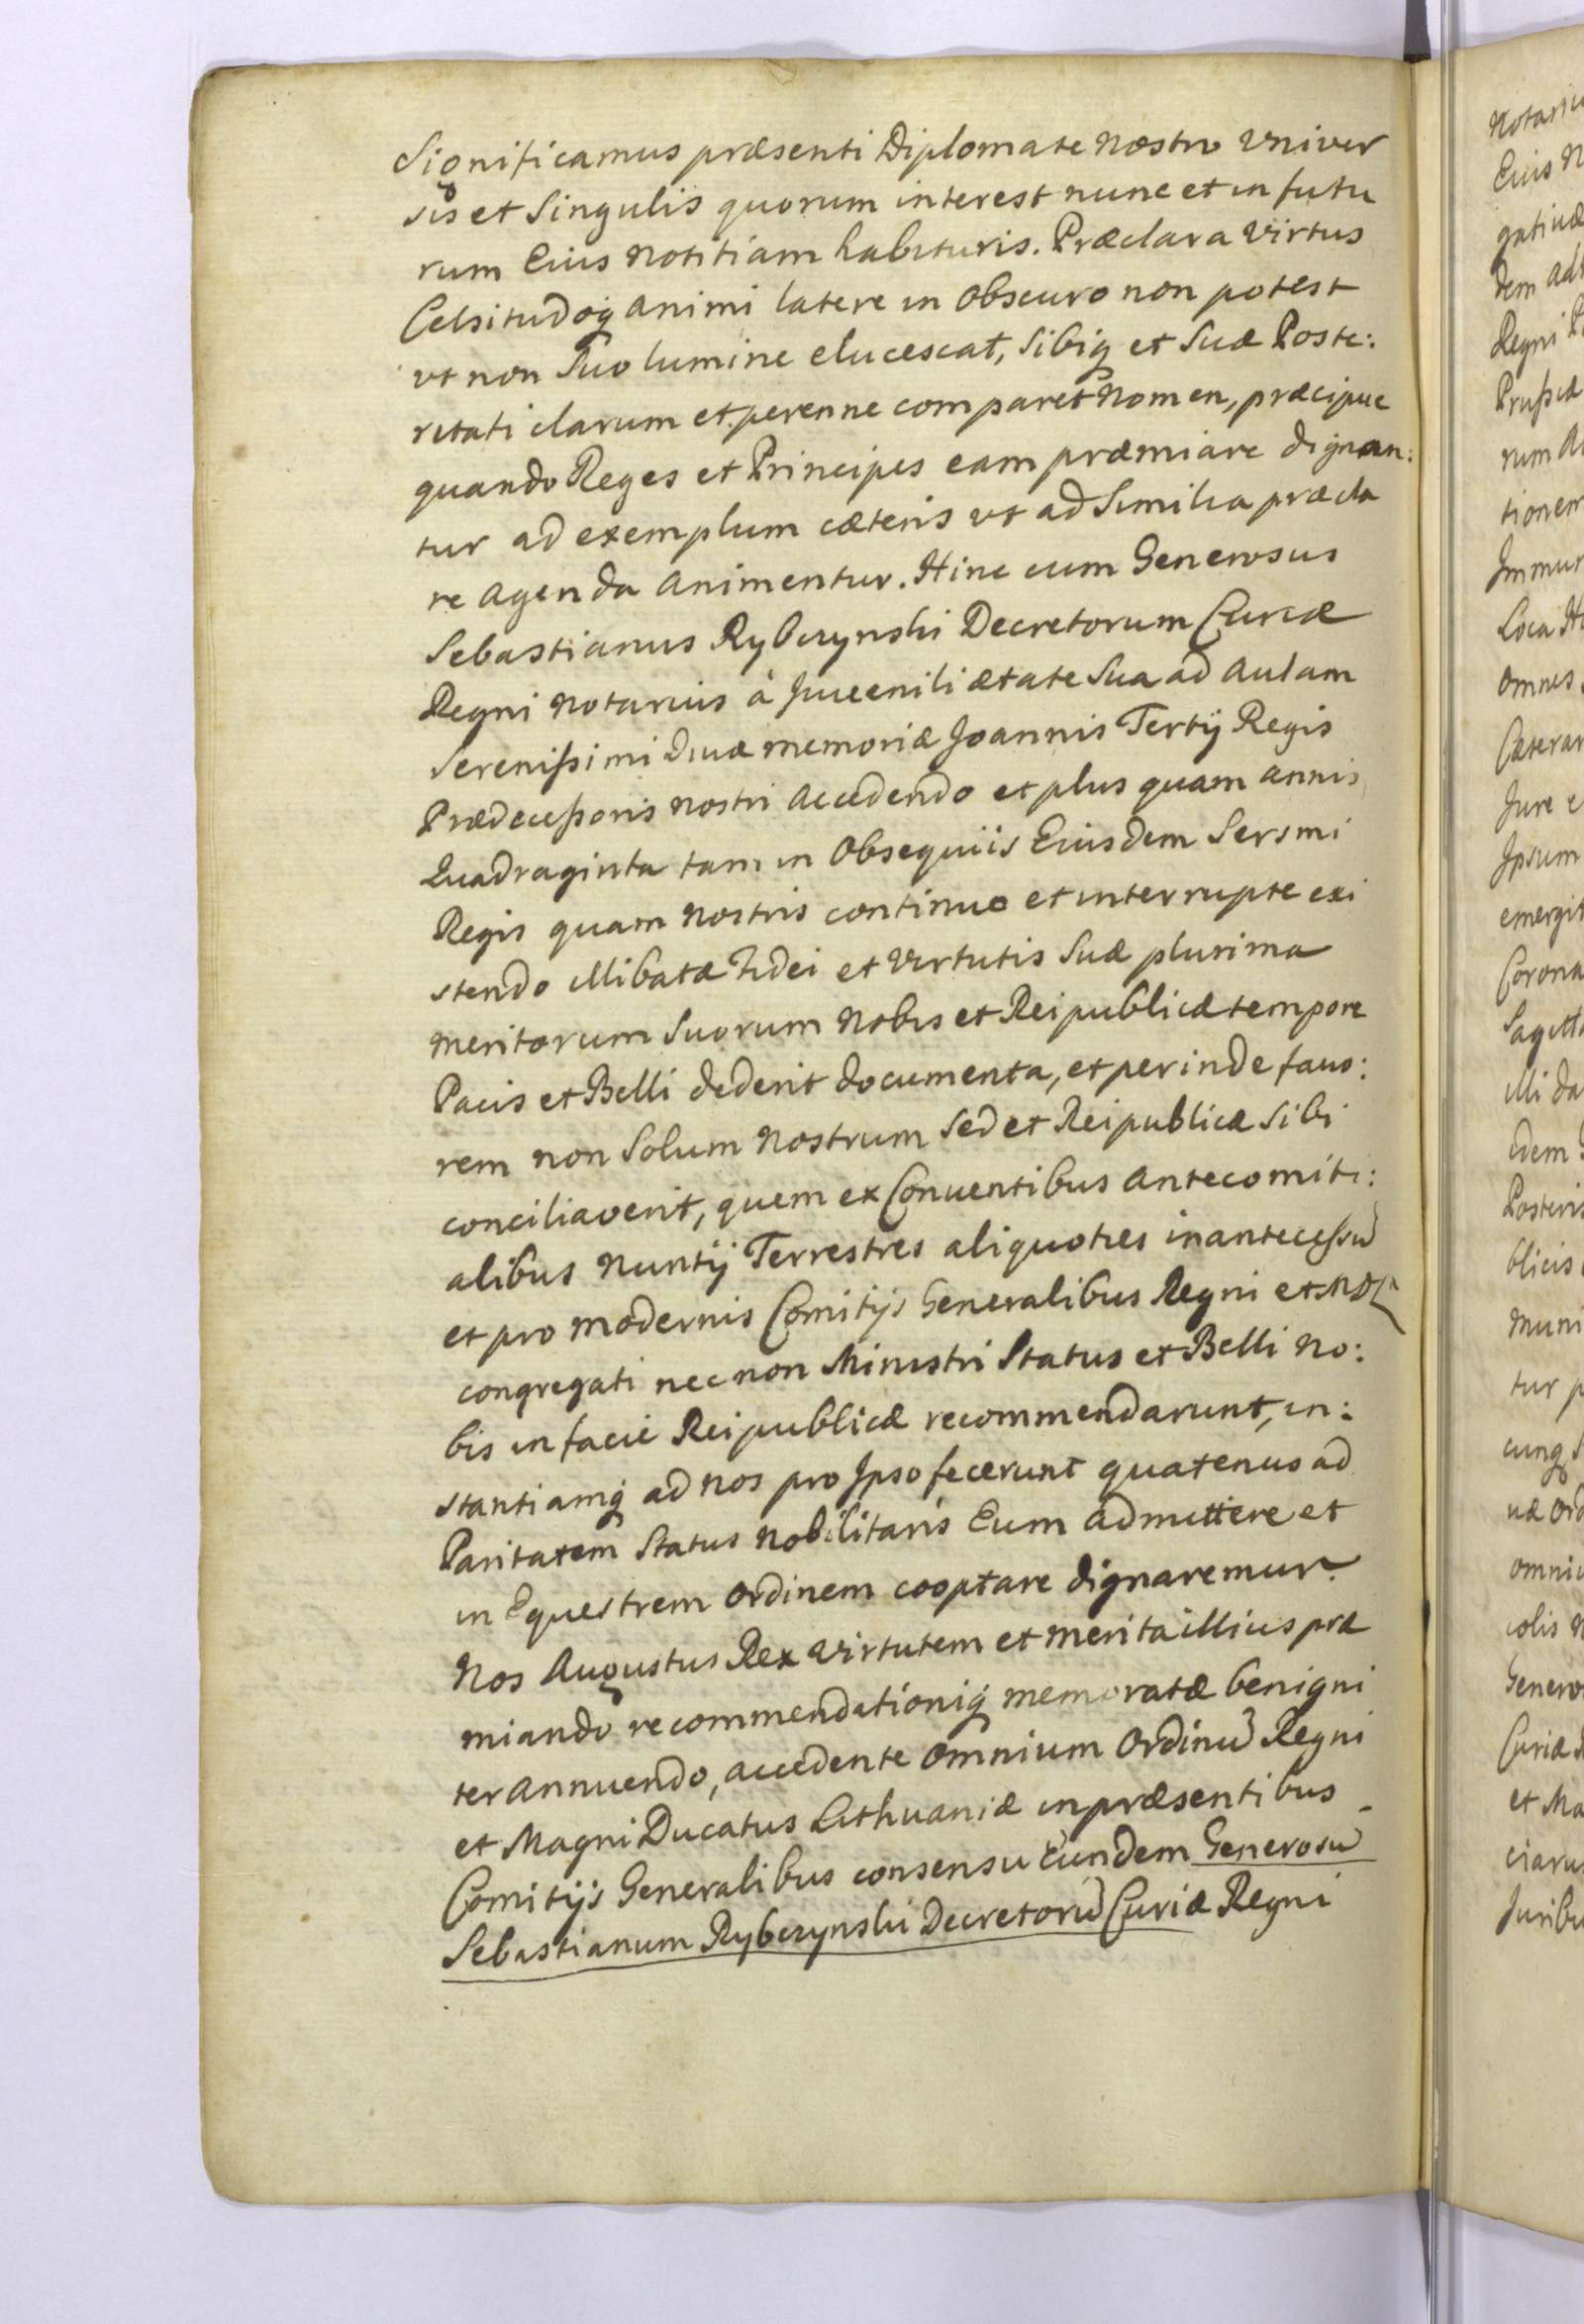 Significamus præsenti Diplomate nostro Univer
sis et Singulis quorum interest nunc et in futu
rum Eius notitiam habituris. Præclara virtus
Celsitudoq animi latere in obscuro non potest
vt non Suo lumine elucescat, sibiq et Suæ Poste:
ritati clarum et perenne comparet Nomen, præcipue
quando Reges et Principes eam præmiare dignan:
tur ad exemplum cæteris vt ad Similia præcla
re agenda animentur. Hinc cum Generosus
Sebastianus Rybczynski Decretorum Curiæ
Regni Notarius à Juuenili ætate Sua ad Aulam
Serenißimi Diuæ memoriæ Joannis Tertij Regis
Prædeceßoris nostri accedendo et plus quam annis
Quadraginta tam in Obsequiis Eiusdem Sersmi
Regis quam Nostris continuo et interrupte exi
stendo illibatæ Fidei et Virtutis Suæ plurima
meritorum Suorum Nobis et Reipublicæ tempore
Pacis et Belli dederit documenta, et perinde fauo:
rem non Solum Nostrum Sed et Reipublicæ sibi
conciliaverit, quem ex Conuentibus Antecomiti:
alibus Nuntij Terrestres aliquoties in anteceßũ
et pro modernis Comitijs Generalibus Regni et MDL
congregati nec non Ministri Status et Belli No:
bis in facie Reipublicæ recommendarunt, in:
stantiamq ad nos pro Ipso fecerunt quatenus ad
Paritatem Status Nobilitaris Eum admittere et
in Equestrem Ordinem cooptare dignaremur.
Nos Augustus Rex Virtutem et merita illius præ
miando recommendationiq memoratæ benigni
ter annuendo, accedente omnium Ordinũ Regni
et Magni Ducatus Lithuaniæ in præsentibus
Comitijs Generalibus consensu Eundem Generosũ
Sebastianum Rybczynski Decretorũ Curiæ Regni
Eius N
Regni P
rum A
tionem
Loca H
omnes
Cæterar
Jure e
Ipsum
emergit
Corona
Sagitt
illi da
idem
Posteris
blicis
muni
tur p
cunq S
omni
colis N
Genero
Curiæ
et Ma
ciaru
Juribu